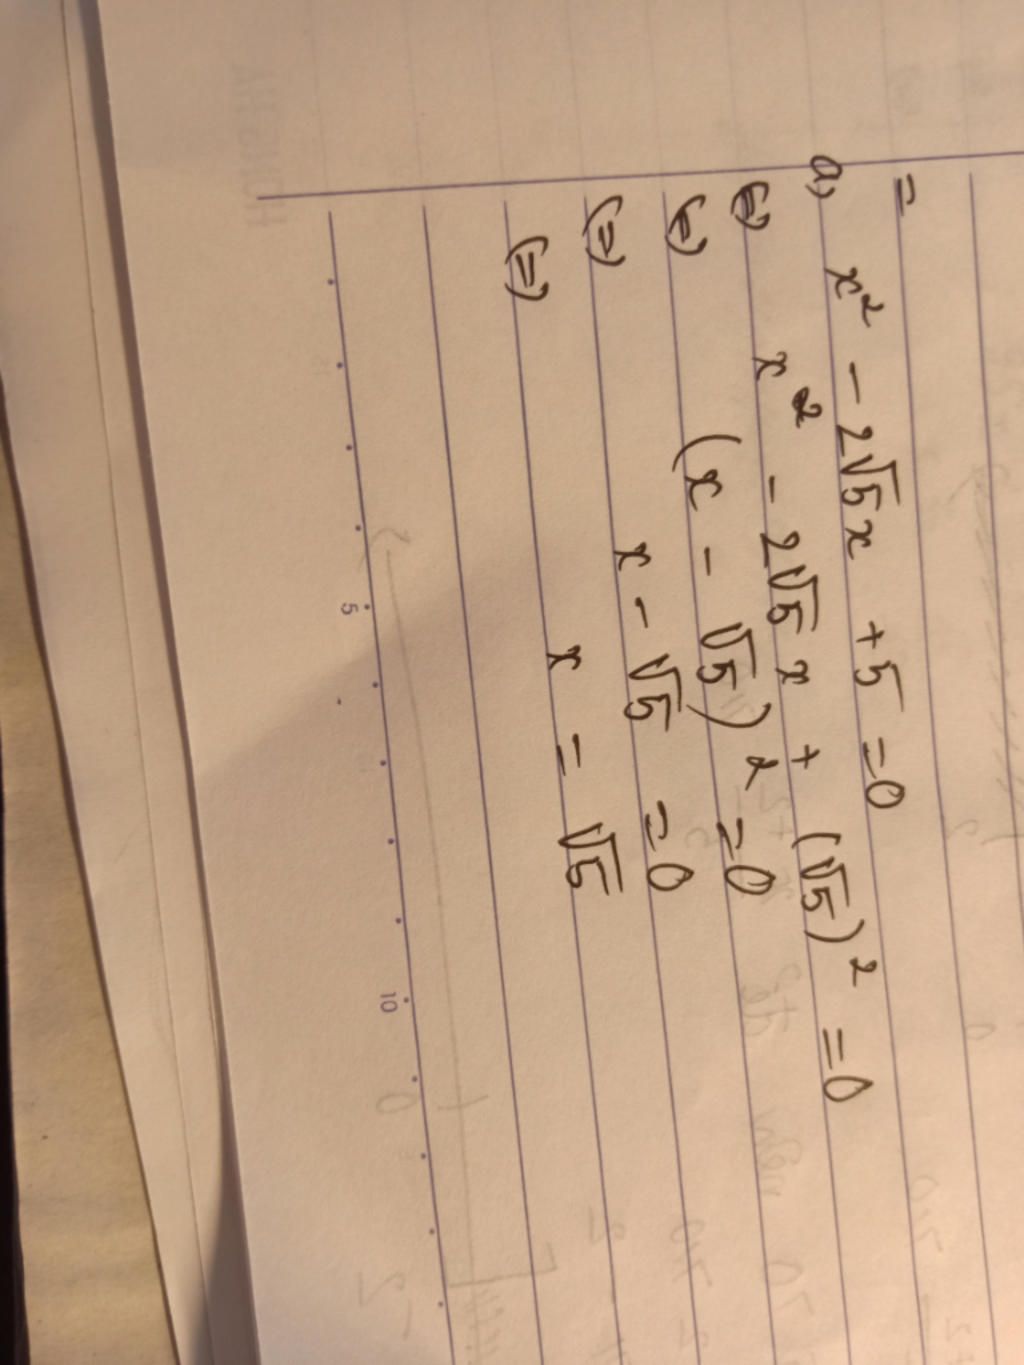 =
a, x² - 2√5x + 5 = 0
(=) x² - 2√5 x + (√5)² = 0
(=) (x - √5)² = 0
(=) x - √5 = 0
(=) x = √5
5 10